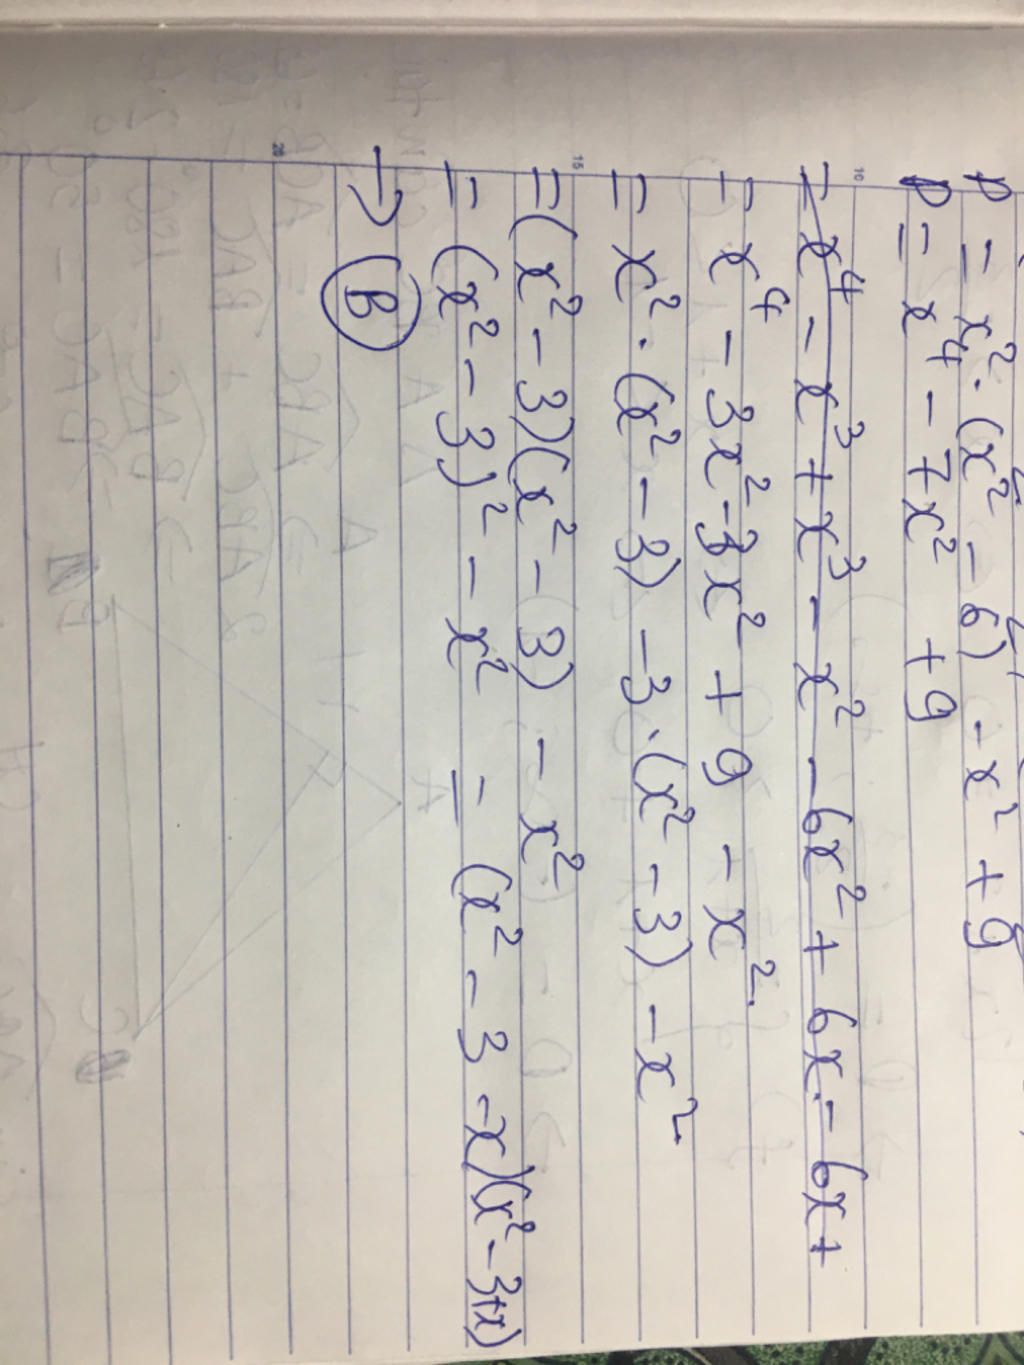 P = x² · (x² - 6) - x² + 9
P = x⁴ - 7x² + 9
= x⁴ - x³ + x³ - x² - 6x² + 6x - 6x +
= x⁴ - 3x² - 3x² + 9 - x².
= x² · (x² - 3) - 3 · (x² - 3) - x²
= (x² - 3)(x² - 3) - x²
= (x² - 3)² - x² = (x² - 3 - x)(x² - 3 + x)
→ B
10
15
20